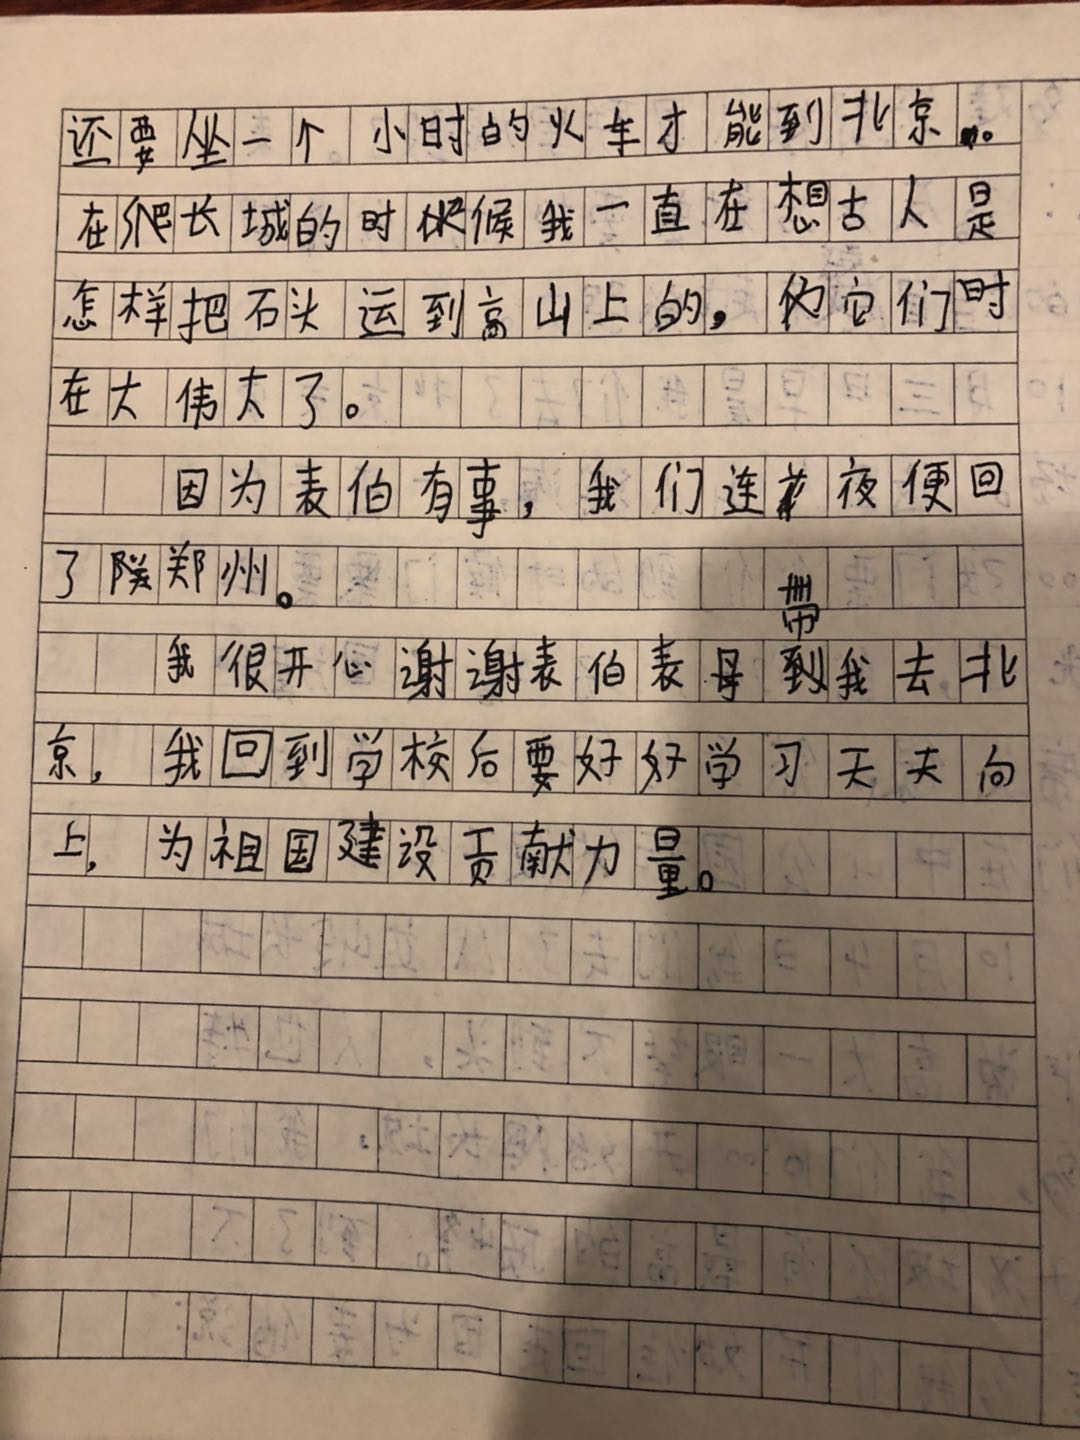 还要坐一个小时的火车才能到北京。
在爬长城的时候我一直在想古人是
怎样把石头运到高山上的，它们时
在大伟大了。
因为表伯有事，我们连夜便回
了郑州。
带
我很开心谢谢表伯表母到我去北
京，我回到学校后要好好学习天天向
上，为祖国建设贡献力量。